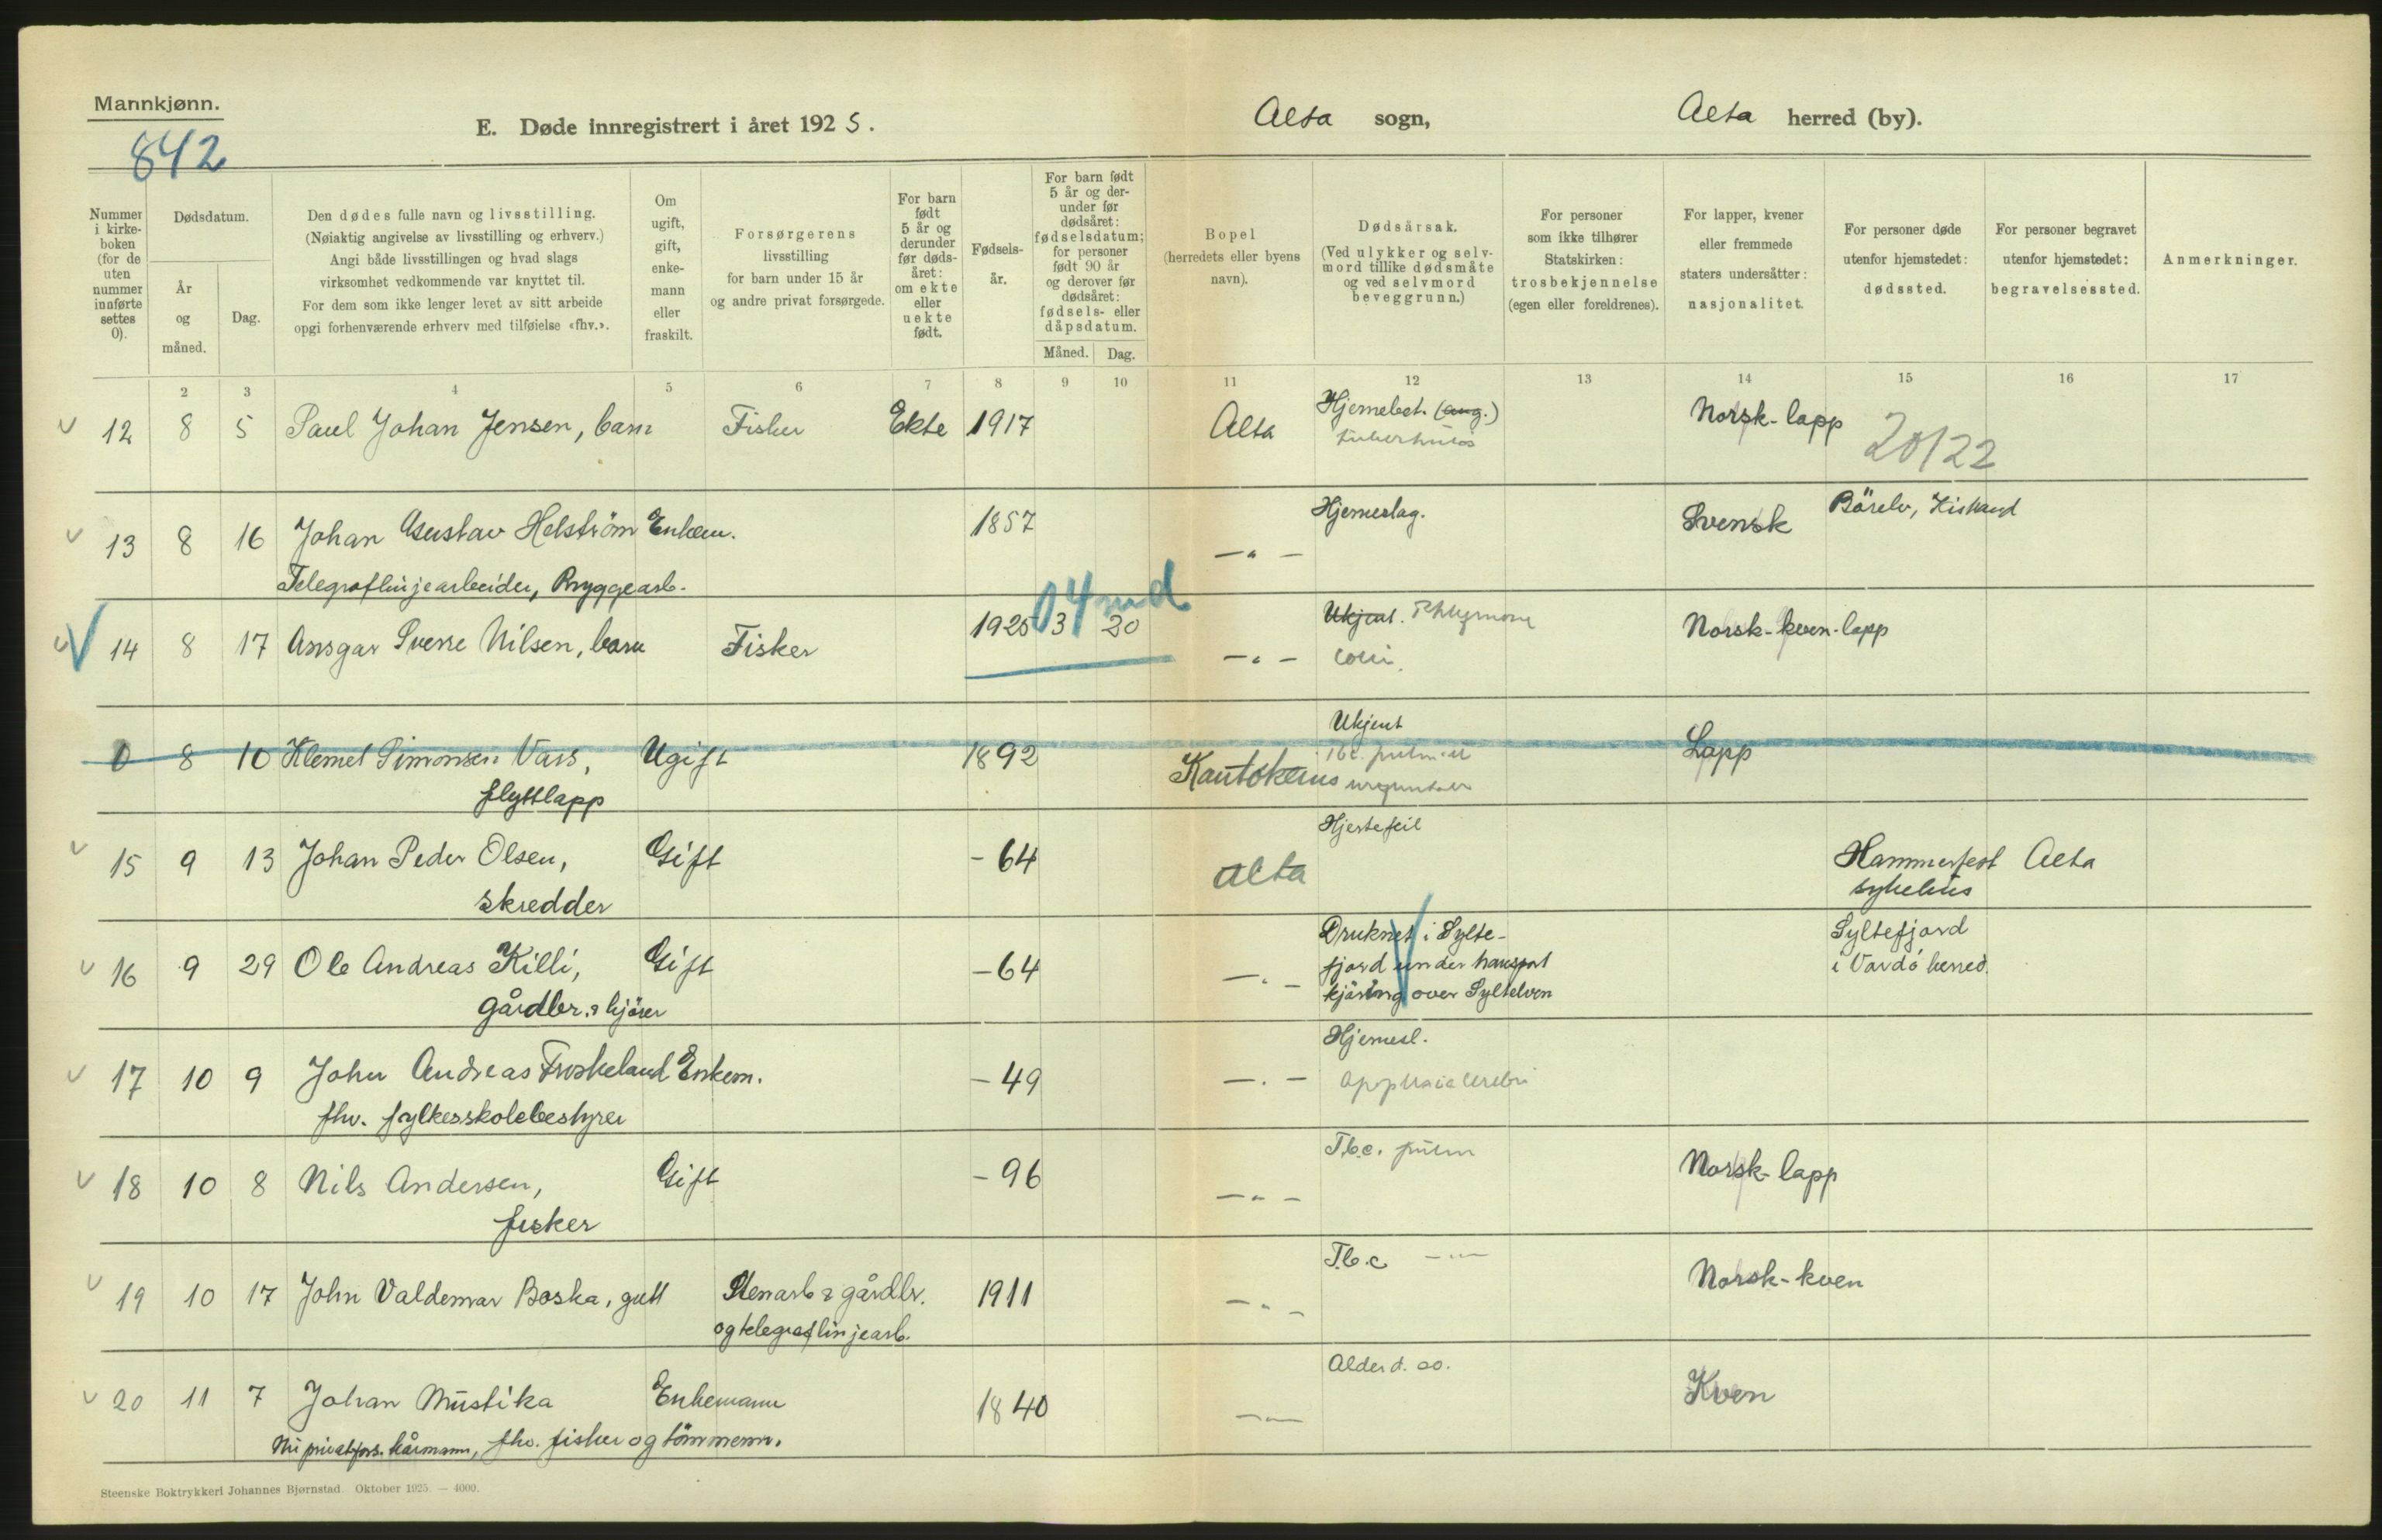 Mannkjønn.
842
E. Døde innregistrert i året 1925.
Alta sogn,
Alta herred (by).
Nummer i kirke-boken (for de uten nummer innførte settes 0).
Dødsdatum.
År og måned.
Dag.
Den dødes fulle navn og livsstilling.
(Nøiaktig angivelse av livsstilling og erhverv.)
Angi både livsstillingen og hvad slags
virksomhet vedkommende var knyttet til.
For dem som ikke lenger levet av sitt arbeide
opgi forhenværende erhverv med tilføielse «fhv.».
Om ugift, gift, enke-mann eller fraskilt.
Forsørgerens
livsstilling
for barn under 15 år
og andre privat forsørgede.
For barn født 5 år og derunder før døds-året: om ekte eller uekte født.
Fødsels-år.
For barn født 5 år og der-under før dødsåret: fødselsdatum; for personer født 90 år og derover før dødsåret: fødsels- eller dåpsdatum.
Måned. Dag.
Bopel
(herredets eller byens
navn).
Dødsårsak.
(Ved ulykker og selv-
mord tillike dødsmåte
og ved selvmord
beveggrunn.)
For personer
som ikke tilhører
Statskirken:
trosbekjennelse
(egen eller foreldrenes).
For lapper, kvener
eller fremmede
staters undersåtter:
nasjonalitet.
For personer døde
utenfor hjemstedet:
dødssted.
For personer begravet
utenfor hjemstedet:
begravelsessted.
Anmerkninger.
2 3 4 5 6 7 8 9 10 11 12 13 14 15 16 17
12 8 5 Paul Johan Jensen, barn Fisker Ekte 1917 Alta Hjernebet. (ang.) Norsk-lapp
tuberkuløs
20/22
13 8 16 Johan Gustav Helström Enkem. 1857 —"— Hjerneslag. Svensk Börselv, Kistrand
Telegraflinjearbeider, Bryggearb.
04 md
14 8 17 Ansgar Sverre Nilsen, barn Fisker 1925 3 20 —"— Ukjent. Phlegmone Norsk-kven-lapp
colli.
0 8 10 Klemet Simonsen Vars, Ugift 1892 Kautokeino Ukjent Lapp
Tbc. pulm.
flyttlapp
15 9 13 Johan Peder Olsen, Gift -64 Alta Hjertefeil Hammerfest Alta
skredder sykehus
16 9 29 Ole Andreas Killi, Gift -64 —"— Druknet i Sylte- Syltefjord
fjord under transport i Vardö herred.
gårdbr. & kjörer kjöring over Syltelven
17 10 9 John Andreas Froskeland Enkem. -49 —"— Hjernesl.
fhv. fylkesskolebestyrer
18 10 8 Nils Andersen, Gift -96 —"— Tbc. pulm Norsk-lapp
fisker
19 10 17 John Valdemar Boska, gutt Stenarb & gårdbr. 1911 —"— T.b.c —"— Norsk-kven
og telegraflinjearb.
20 11 7 Johan Mustika Enkemann 1840 —"— Alderd. Kven
Nu privatfors. kårmann, fhv. fisker og tömmerm.
Steenske Boktrykkeri Johannes Bjørnstad. Oktober 1925. — 4000.